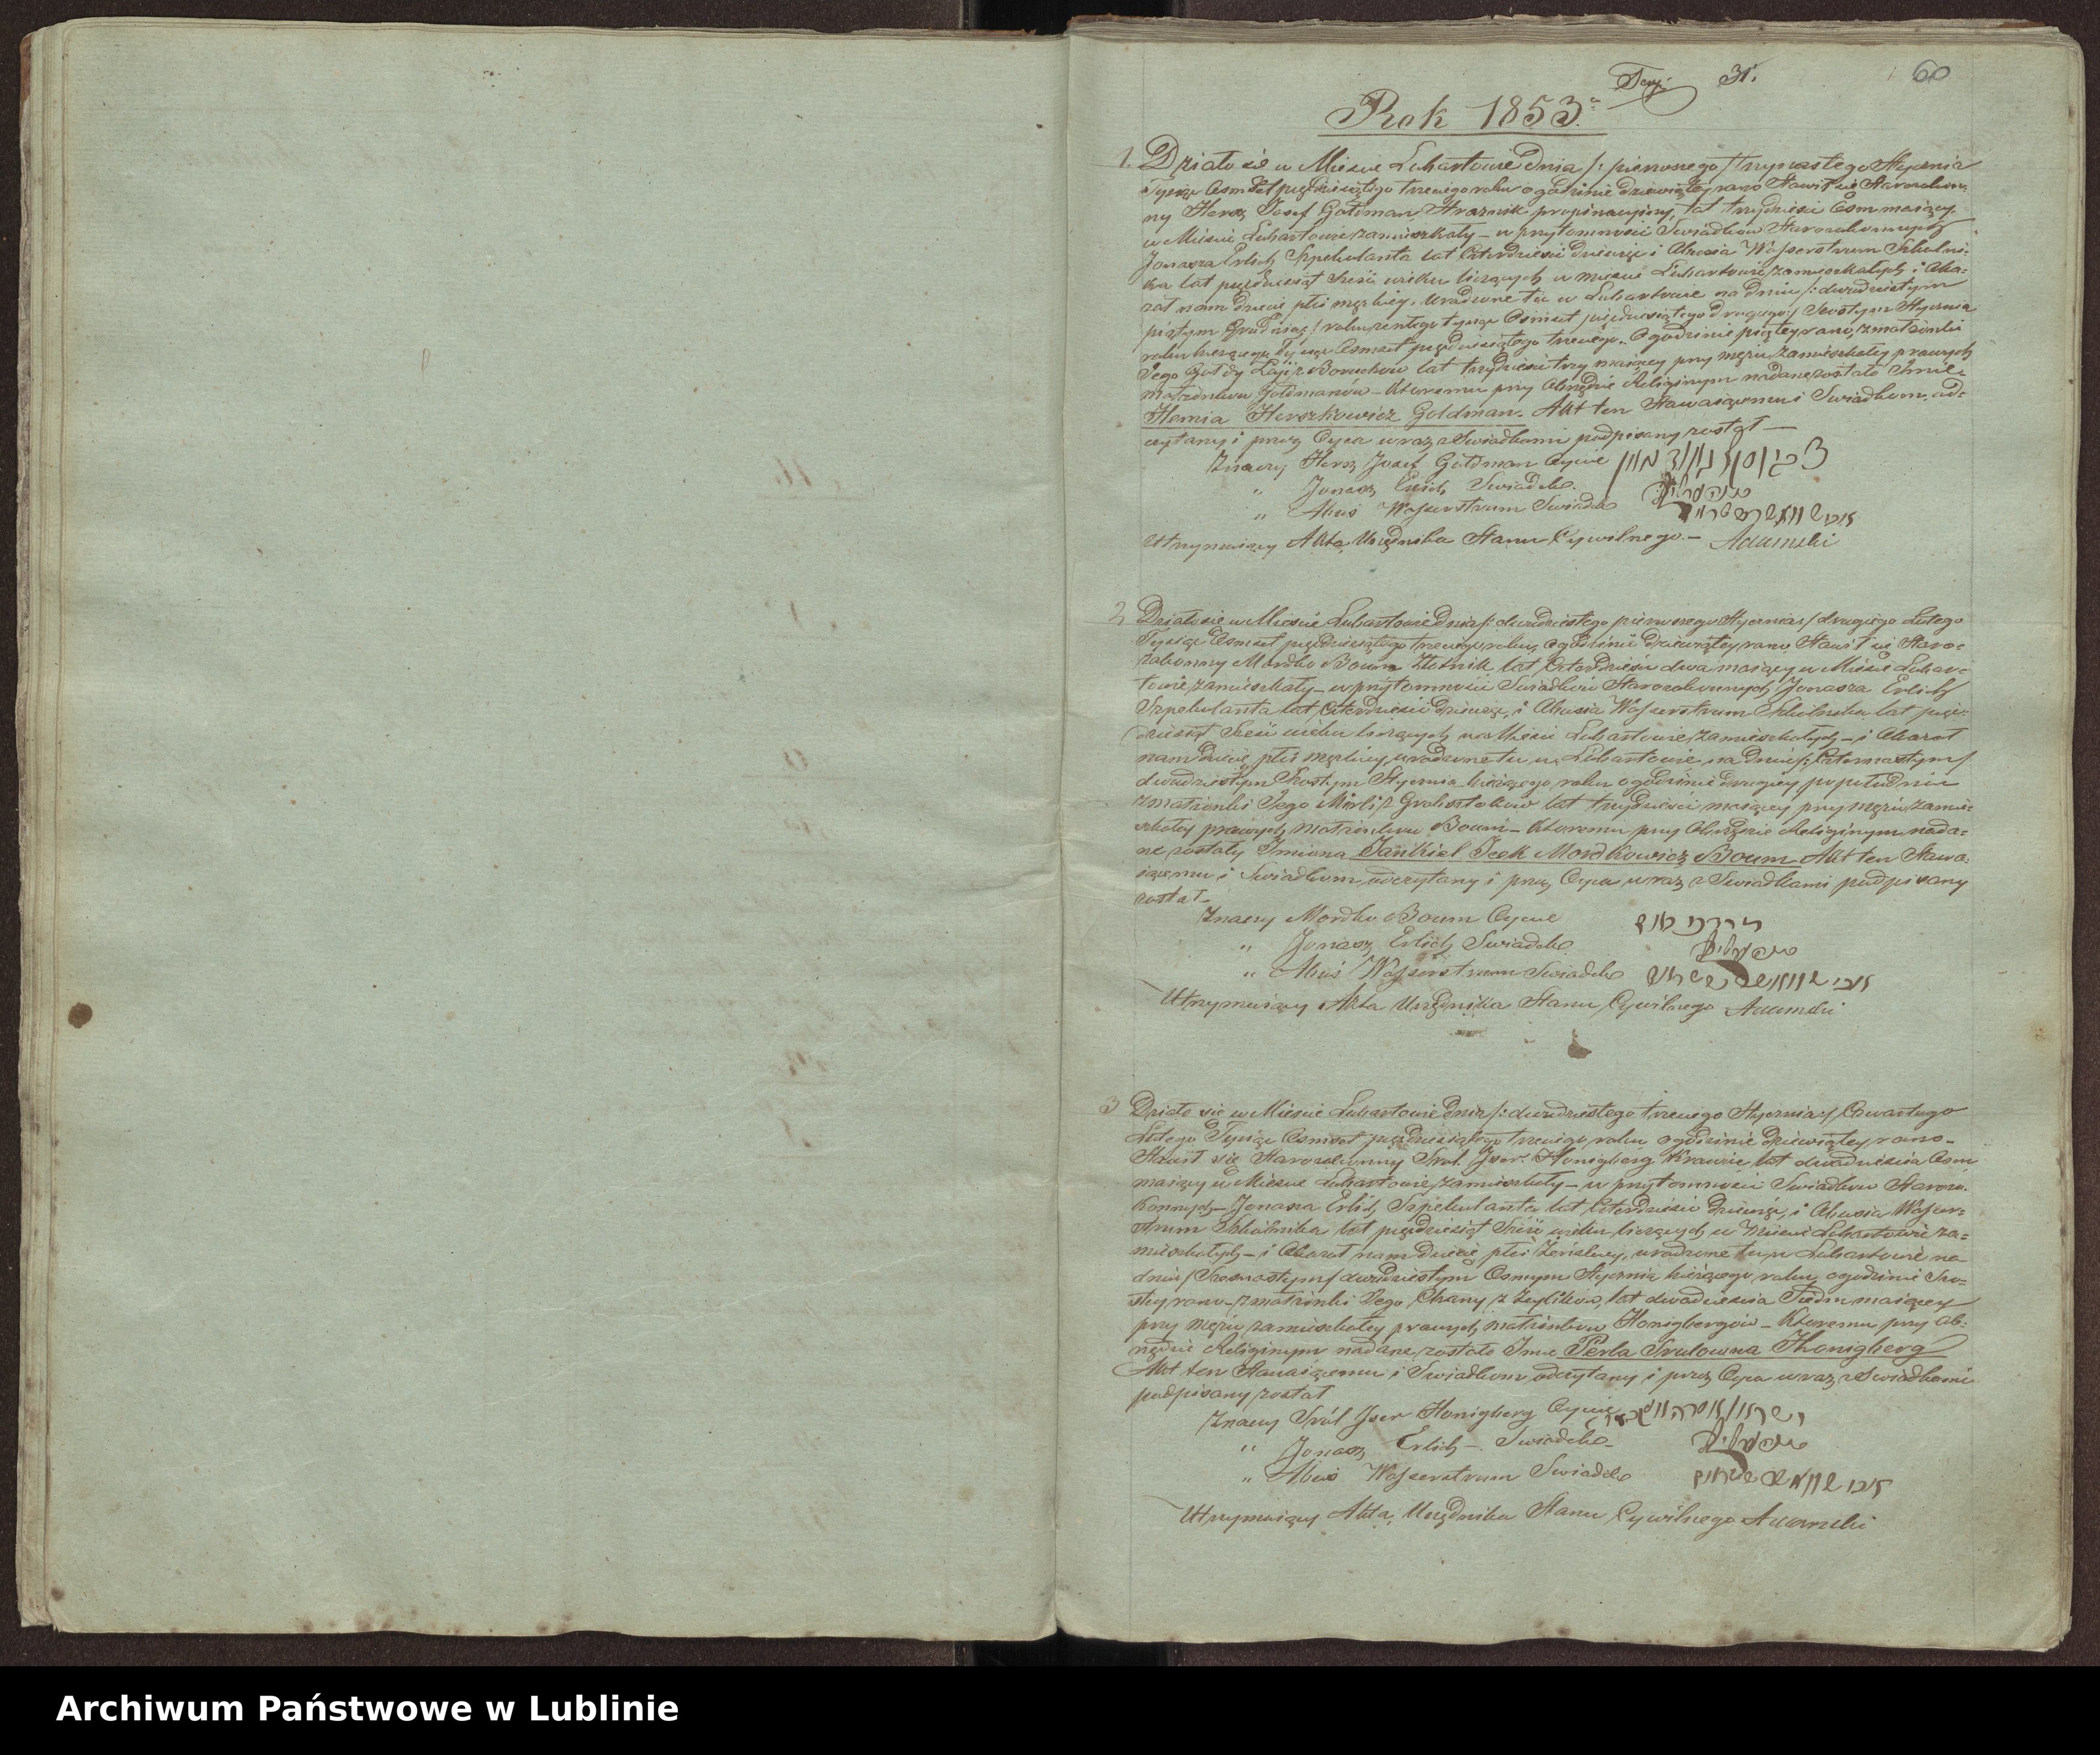 31.
60
Rok 1853.
1. Działo się w Mieście Lubartowie dnia /: pierwszego / trzynastego Stycznia
Tysiąc Osmset pięćdziesiątego trzeciego roku o godzinie dziewiątey rano Stawił się Starozakon-
ny Herszk Josef Goldman Strażnik propinacyiny, lat trzydzieści Osm maiący
w Mieście Lubartowie zamieszkały – w przytomności Swiadków Starozakonnych
Jonasza Erlich Szpekulanta lat Czterdzieści dziewięć i Abusia Wasserstrum Szkolni-
ka lat pięćdziesiąt sześć wieku liczących w mieście Lubartowie zamieszkałych i Oka-
zał nam dziecie płci męzkiey, urodzone tu w Lubartowie na dniu /: dwudziestym
piątym Grudnia / roku zeszłego tysiąc Osmset pięćdziesiątego drugiego / Szostym Stycznia
roku bieżącego Tysiąc Osmset pięćdziesiątego trzeciego. O godzinie piątey rano, z małżonki
Jego Gołdy Łaji z Boruchów lat trzydzieści trzy maiącey przy mężu zamieszkałey prawych
małżonków Goldmanów – Któremu przy Obrzędzie Religijnym nadane zostało Imie
Hemia Herszkowicz Goldman. Akt ten Stawaiącemu i Swiadkom od-
czytany i przez Oyca wraz z Swiadkami podpisany został –
Znaczy Hersz Josef Goldman Oyciec
" Jonasz Erlich Swiadek
" Abuś Wasserstrum Swiadek
Utrzymuiący Akta Urzędnika Stanu Cywilnego. – Adamski
2 Działo się w Mieście Lubartowie Dnia /: dwudziestego pierwszego Stycznia / drugiego Lutego
Tysiąc Osmset pięćdziesiątego trzeciego roku, o godzinie dziewiątey rano Stawił się Staro-
zakonny Mordko Boum Złotnik lat Czterdzieści dwa maiący w Mieście Lubar-
towie zamieszkały – w przytomności Swiadków Starozakonnych Jonasza Erlich
Szpekulanta lat Czterdzieści dziewięć, i Abusia Wasserstrum Szkolnika lat pięć-
dziesiąt sześć wieku liczących w Mieście Lubartowie zamieszkałych – i Okazał
nam dziecie płci męzkiey, urodzone tu w Lubartowie na dniu /: Czternastym /
dwudziestym Szostym Stycznia bieżącego roku o godzinie drugiey po południu
z małżonki Jego Mirli z lat trzydzieści maiącey przy mężu zamie-
szkałey prawych małżonków Boum – Któremu przy Obrzędzie Religijnym nada-
ne zostały Imiona Jankiel Icek Mordkowicz Boum Akt ten Stawa-
iącemu i Swiadkom odczytany i przez Oyca wraz z Swiadkami podpisany
został –
Znaczy Mordko Boum Oyciec
" Jonasz Erlich Swiadek
" Abuś Wasserstrum Swiadek
Utrzymuiący Akta Urzędnika Stanu Cywilnego Adamski
3 Działo się w Mieście Lubartowie Dnia /: dwudziestego trzeciego Stycznia :/ Czwartego
Lutego Tysiąc Osmset pięćdziesiątego trzeciego roku o godzinie dziewiątey rano –
Stawił się Starozakonny Srul Jser Honigberg Krawiec lat dwadzieścia Osm
maiący w Mieście Lubartowie zamieszkały – w przytomności Swiadków Staroza-
konnych – Jonasza Erlich Szpekulanta lat Czterdzieści dziewięć, i Abusia Wasser-
strum Szkolnika lat pięćdziesiąt sześć wieku liczących w Mieście Lubartowie za-
mieszkałych – i Okazał nam dziecie płci żeńskiey, urodzone tu w Lubartowie na
dniu / Szesnastym / dwudziestym Osmym Stycznia bieżącego roku, o godzinie Szo-
stey rano – z małżonki Jego Chany z lat dwadzieścia Siedm maiącey
przy mężu zamieszkałey prawych małżonków Honigbergów – Któremu przy Ob-
rzędzie Religijnym nadane zostało Imie Perla Srulowna Honigberg
Akt ten Stawaiącemu i Swiadkom odczytany i przez Oyca wraz z Swiadkami
podpisany został
Znaczy Srul Jser Honigberg Oyciec
" Jonasz Erlich – Swiadek –
" Abuś Wasserstrum Swiadek
Utrzymuiący Akta Urzędnika Stanu Cywilnego Adamski
Archiwum Państwowe w Lublinie